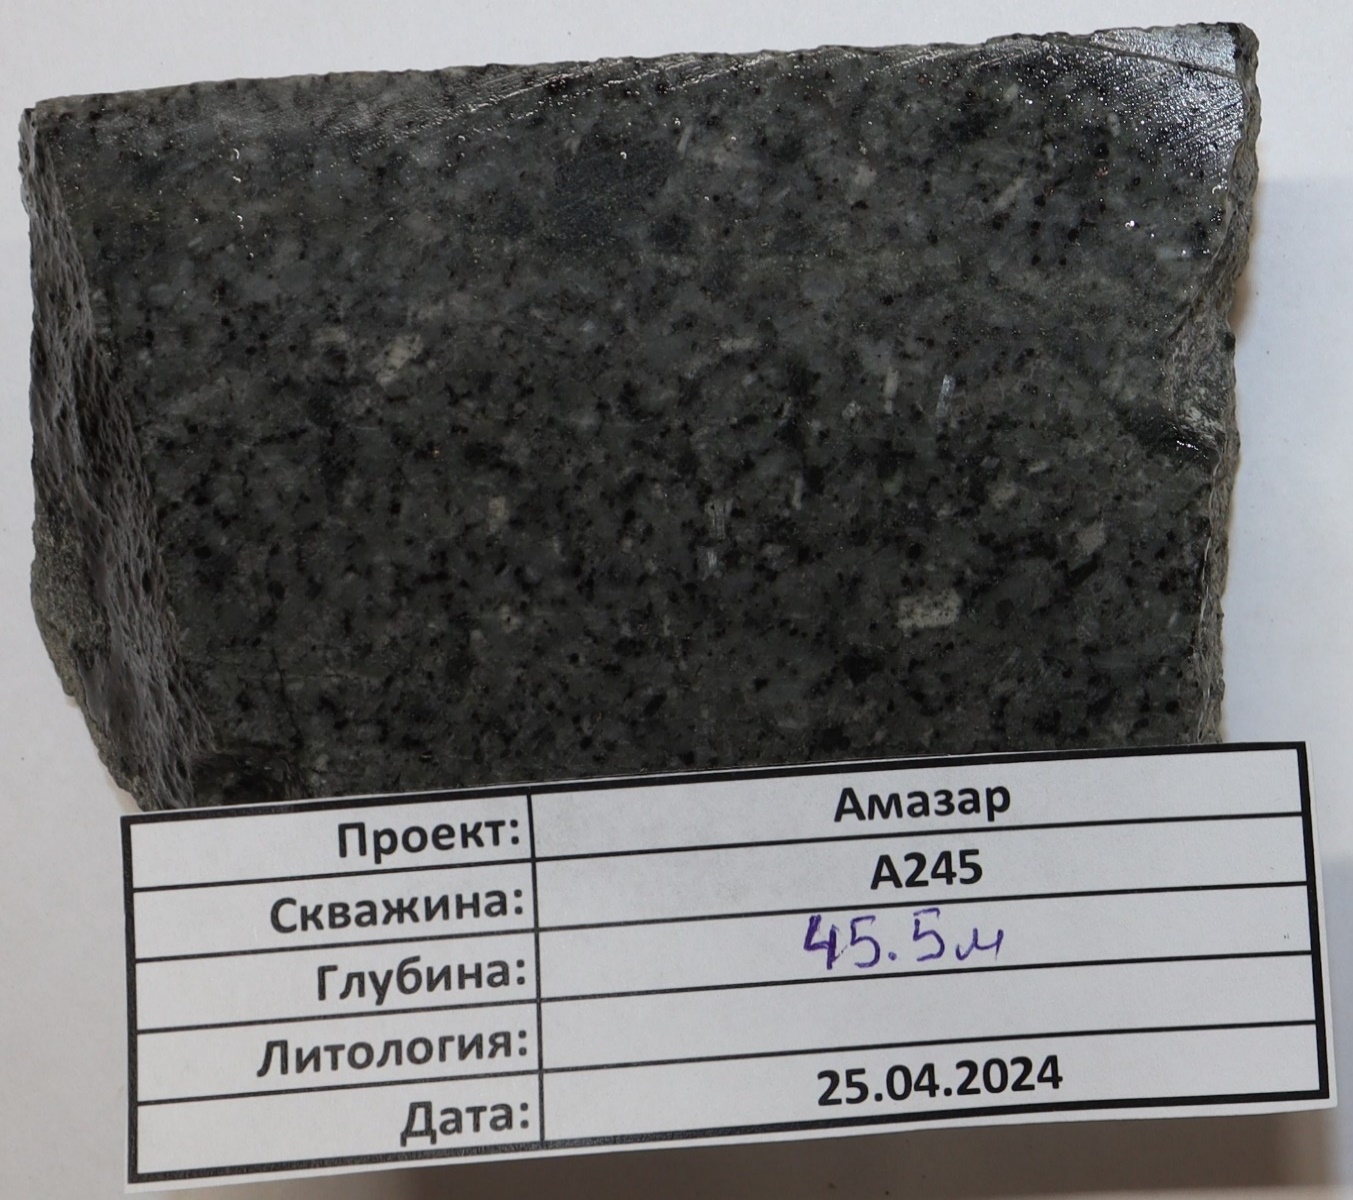 Проект: Амазар
Скважина: А245
Глубина: 45.5м
Литология:
Дата: 25.04.2024